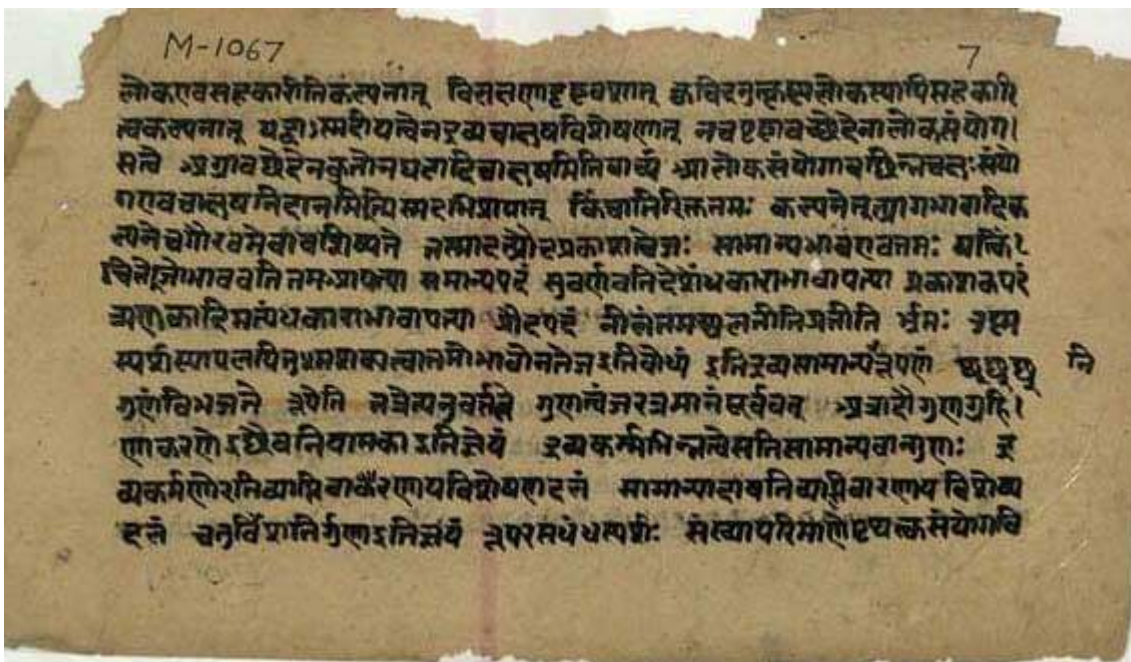 M-1067
7
लोकएवसहकारीतिकल्पनात् विलक्षणा क्वचिदनुत्कृष्टालोकस्यापिसहकारि
त्वकल्पनात् यद्वाऽस्मदीयत्वेनद्रव्यचाक्षुषविशेषणात् नचपृष्ठावच्छेदेनालोकसंयोग।
सत्वे अग्रावछेदेनकुतोनघटादिचाक्षुषमितिवाच्यं आलोकसंयोगावछिन्नचक्षुःसंयो
गएवचाक्षुषनिदानमित्यस्मदभिप्रायात् किंचातिरिक्ततमः कल्पनेतत्प्रागभावादिक
ल्पनेचगौरवमेवावशिष्यते तस्मादत्प्रौढप्रकाशत्वेजः सामान्यभावएवतमः यत्किं।
चित्तेजोभाववतितमआपत्या सामान्यपदं सुवर्णवतिदेशेंधकाराभावापत्या प्रकाशकपदं
त्र्यणुकादिमत्यंधकाराभावापत्या प्रौढपदं नीलंतमश्चलतीतिप्रतीति र्भ्रमः
स्पर्शस्यापलपितुमशक्यत्वात्तमोभावोनतेजइतिबोध्यं इतिद्रव्यसामान्यनिरूपणं छछछ नि
गुणंविभजते रूपेति तत्रेत्यनुवर्तते गुणत्वंजरत्रमानंपूर्ववत् अत्रादौगुणग्रहि।
णाकरणे इछैवनियामकाइतिज्ञेयं द्रव्यकर्मभिन्नत्वेसतिसामान्यवान्गुणः द्र
व्यकर्मणोरतिव्याप्तिवारणायविशेषणदलं सामान्यादावतिव्याप्तिवारणाय विशेष्य
दलं चतुर्विंशतिर्गुणाइतिज्ञेयं रूपरसगंधस्पर्शाः संख्यापरिमाणेपृथक्त्वसंयोगावि